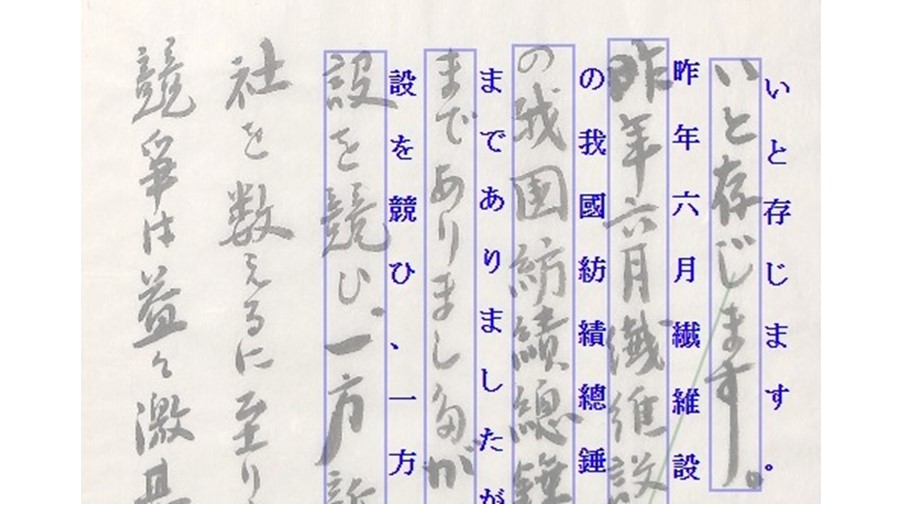 いと存じます。
いと存じます。
昨年六月繊維設
昨年六月繊維設
の我國紡績總錘
の我国紡績總錘
までありましたが
までありましたが
設を競ひ、一方
設を競ひ、一方
社を数えるに至り
競爭は益々激甚